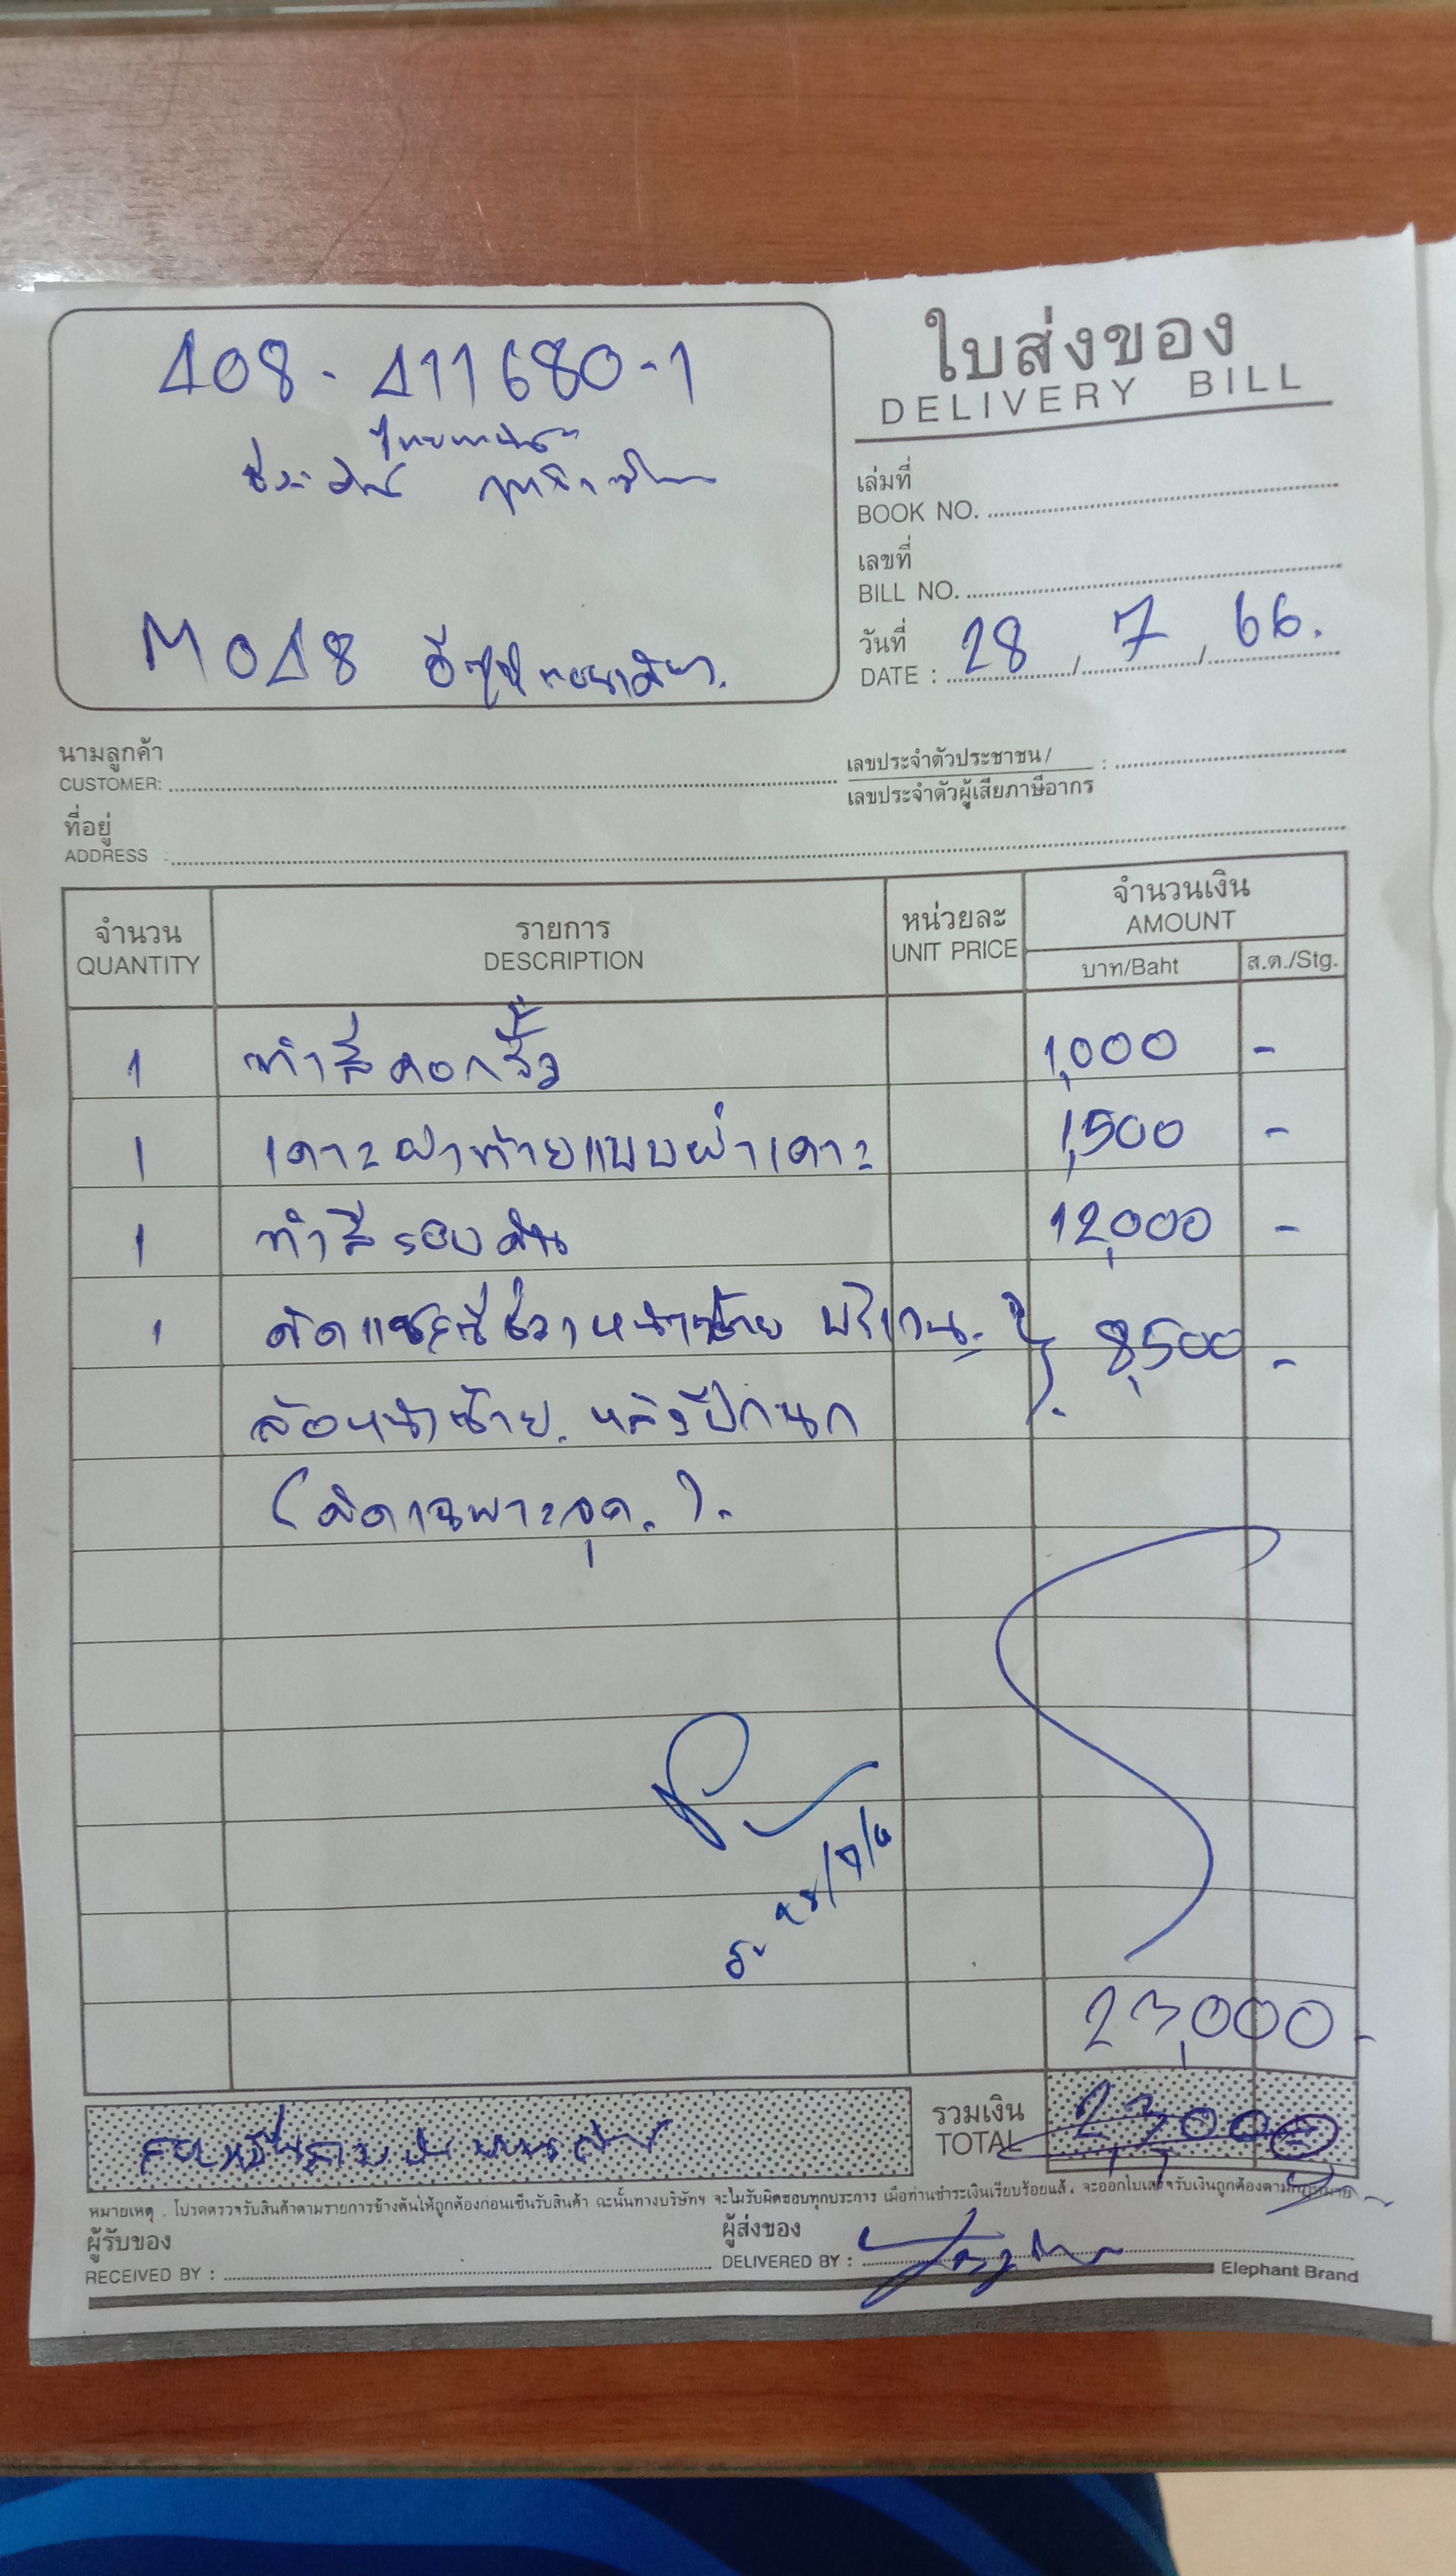 408-411680-1
ใบส่งของ
DELIVERY BILL
เล่มที่
BOOK NO.
เลขที่
BILL NO.
M048 อีซูซุตอนเดียว.
วันที่
DATE : 28 / 7 / 66.
นามลูกค้า
CUSTOMER:
เลขประจำตัวประชาชน /
เลขประจำตัวผู้เสียภาษีอากร :
ที่อยู่
ADDRESS :
จำนวน รายการ หน่วยละ จำนวนเงิน
QUANTITY DESCRIPTION UNIT PRICE AMOUNT
บาท/Baht ส.ต./Stg.
1 ทำสี 1,000 -
1 เคาะฝาท้ายแบบผ่าเคาะ 1,500 -
1 ทำสีรอบคัน 12,000 -
1 ดัดแชสซีช่วงหน้าซ้าย บริเวณ 8,500 -
ล้อหน้าซ้าย. หลังปีกนก
(ดัดเฉพาะจุด.).
23,000 -
รวมเงิน
TOTAL 23,000
หมายเหตุ . โปรดตรวจรับสินค้าตามรายการข้างต้นให้ถูกต้องก่อนเซ็นรับสินค้า ฉะนั้นทางบริษัทฯ จะไม่รับผิดชอบทุกประการ เมื่อท่านชำระเงินเรียบร้อยแล้ว, จะออกใบเสร็จรับเงินถูกต้องตามกฎหมาย
ผู้รับของ ผู้ส่งของ
RECEIVED BY : DELIVERED BY :
Elephant Brand